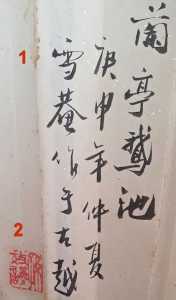 蘭亭鵞池
庚申年仲夏
雪菴作于古越
1
2